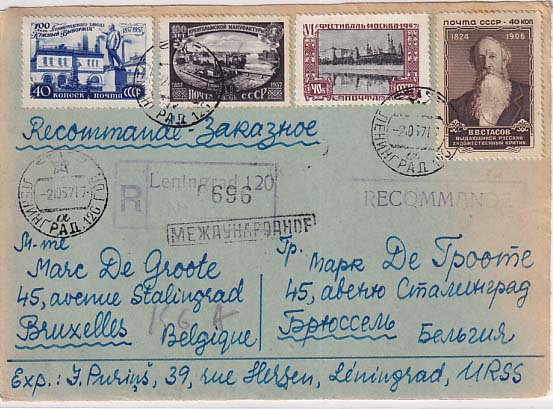 100 лет Ленинградского завода
"Красный Выборжец" 1857-1957
40 КОПЕЕК ПОЧТА СССР
100 ЛЕТ
МАНУФАКТУРЫ
1857 1957
ПОЧТА СССР
VI ФЕСТИВАЛЬ МОСКВА 1957
40 К
ПОЧТА СССР
ПОЧТА СССР 40 КОП
1824 1906
В.В.СТАСОВ
ВЫДАЮЩИЙСЯ РУССКИЙ
ХУДОЖЕСТВЕННЫЙ КРИТИК
ЛЕНИНГРАД 120
ЛЕНИНГРАД
-210571
Recommandé-Заказное
ЛЕНИНГРАД.120 ГОР.
-210571
α
R Leningrad 120
0696
RECOMMAN
МЕЖДУНАРОДНОЕ
M-me
Marc De Groote
45, avenue Stalingrad
Bruxelles
Belgique
Гр.
Марк Де Грооте
45, авеню Сталинград
Брюссель
Бельгия
Exp.: J. Puriņš, 39, rue Herzen, Léningrad, URSS